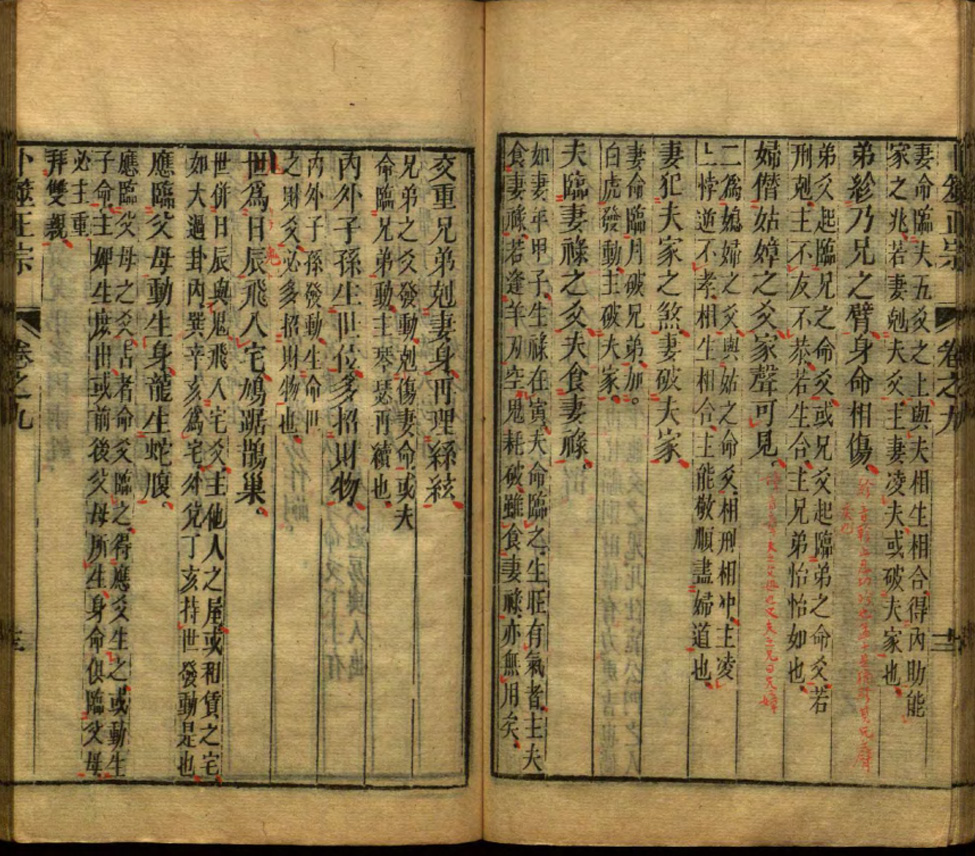 卷之九
妻命臨夫五爻之上與夫相生相合得內助能
家之兆若妻剋夫爻主妻凌夫或破夫家也
弟紾乃兄之臂身命相傷
弟爻起臨兄之命爻或兄爻起臨弟之命爻若
刑剋主不友不恭若生合主兄弟怡怡如也
婦僭姑嫜之爻家聲可見
二爲媳婦之爻與姑之命爻相刑相冲主凌
上悖逆不孝相生相合主能敬順盡婦道也
妻犯夫家之煞妻破夫家
妻命臨月破兄弟加
白虎發動主破夫家
夫臨妻祿之爻夫食妻祿
如妻年甲子生祿在寅夫命臨之生旺有氣者主夫
食妻祿若逢羊刃空鬼耗破雖食妻祿亦無用矣
交重兄弟剋妻身再理絲絃
兄弟之爻發動剋傷妻命或夫
命臨兄弟動主琴瑟再續也
內外子孫生世位多招財物
內外子孫發動生命世
之財爻必多招財物也
世爲日辰飛入宅鳩踞鵲巢
世併日辰與鬼飛入宅爻主他人之屋或和賃之宅
如大過卦內巽辛亥爲宅外兌丁亥持世發動是也
應臨父母動生身龍生蛇腹
應臨父母之爻占者命爻臨之得應爻生之或動生
子命主婢生庶出或前後父母所生身命俱臨父母
必主重
拜雙親
卜筮正宗 卷之九